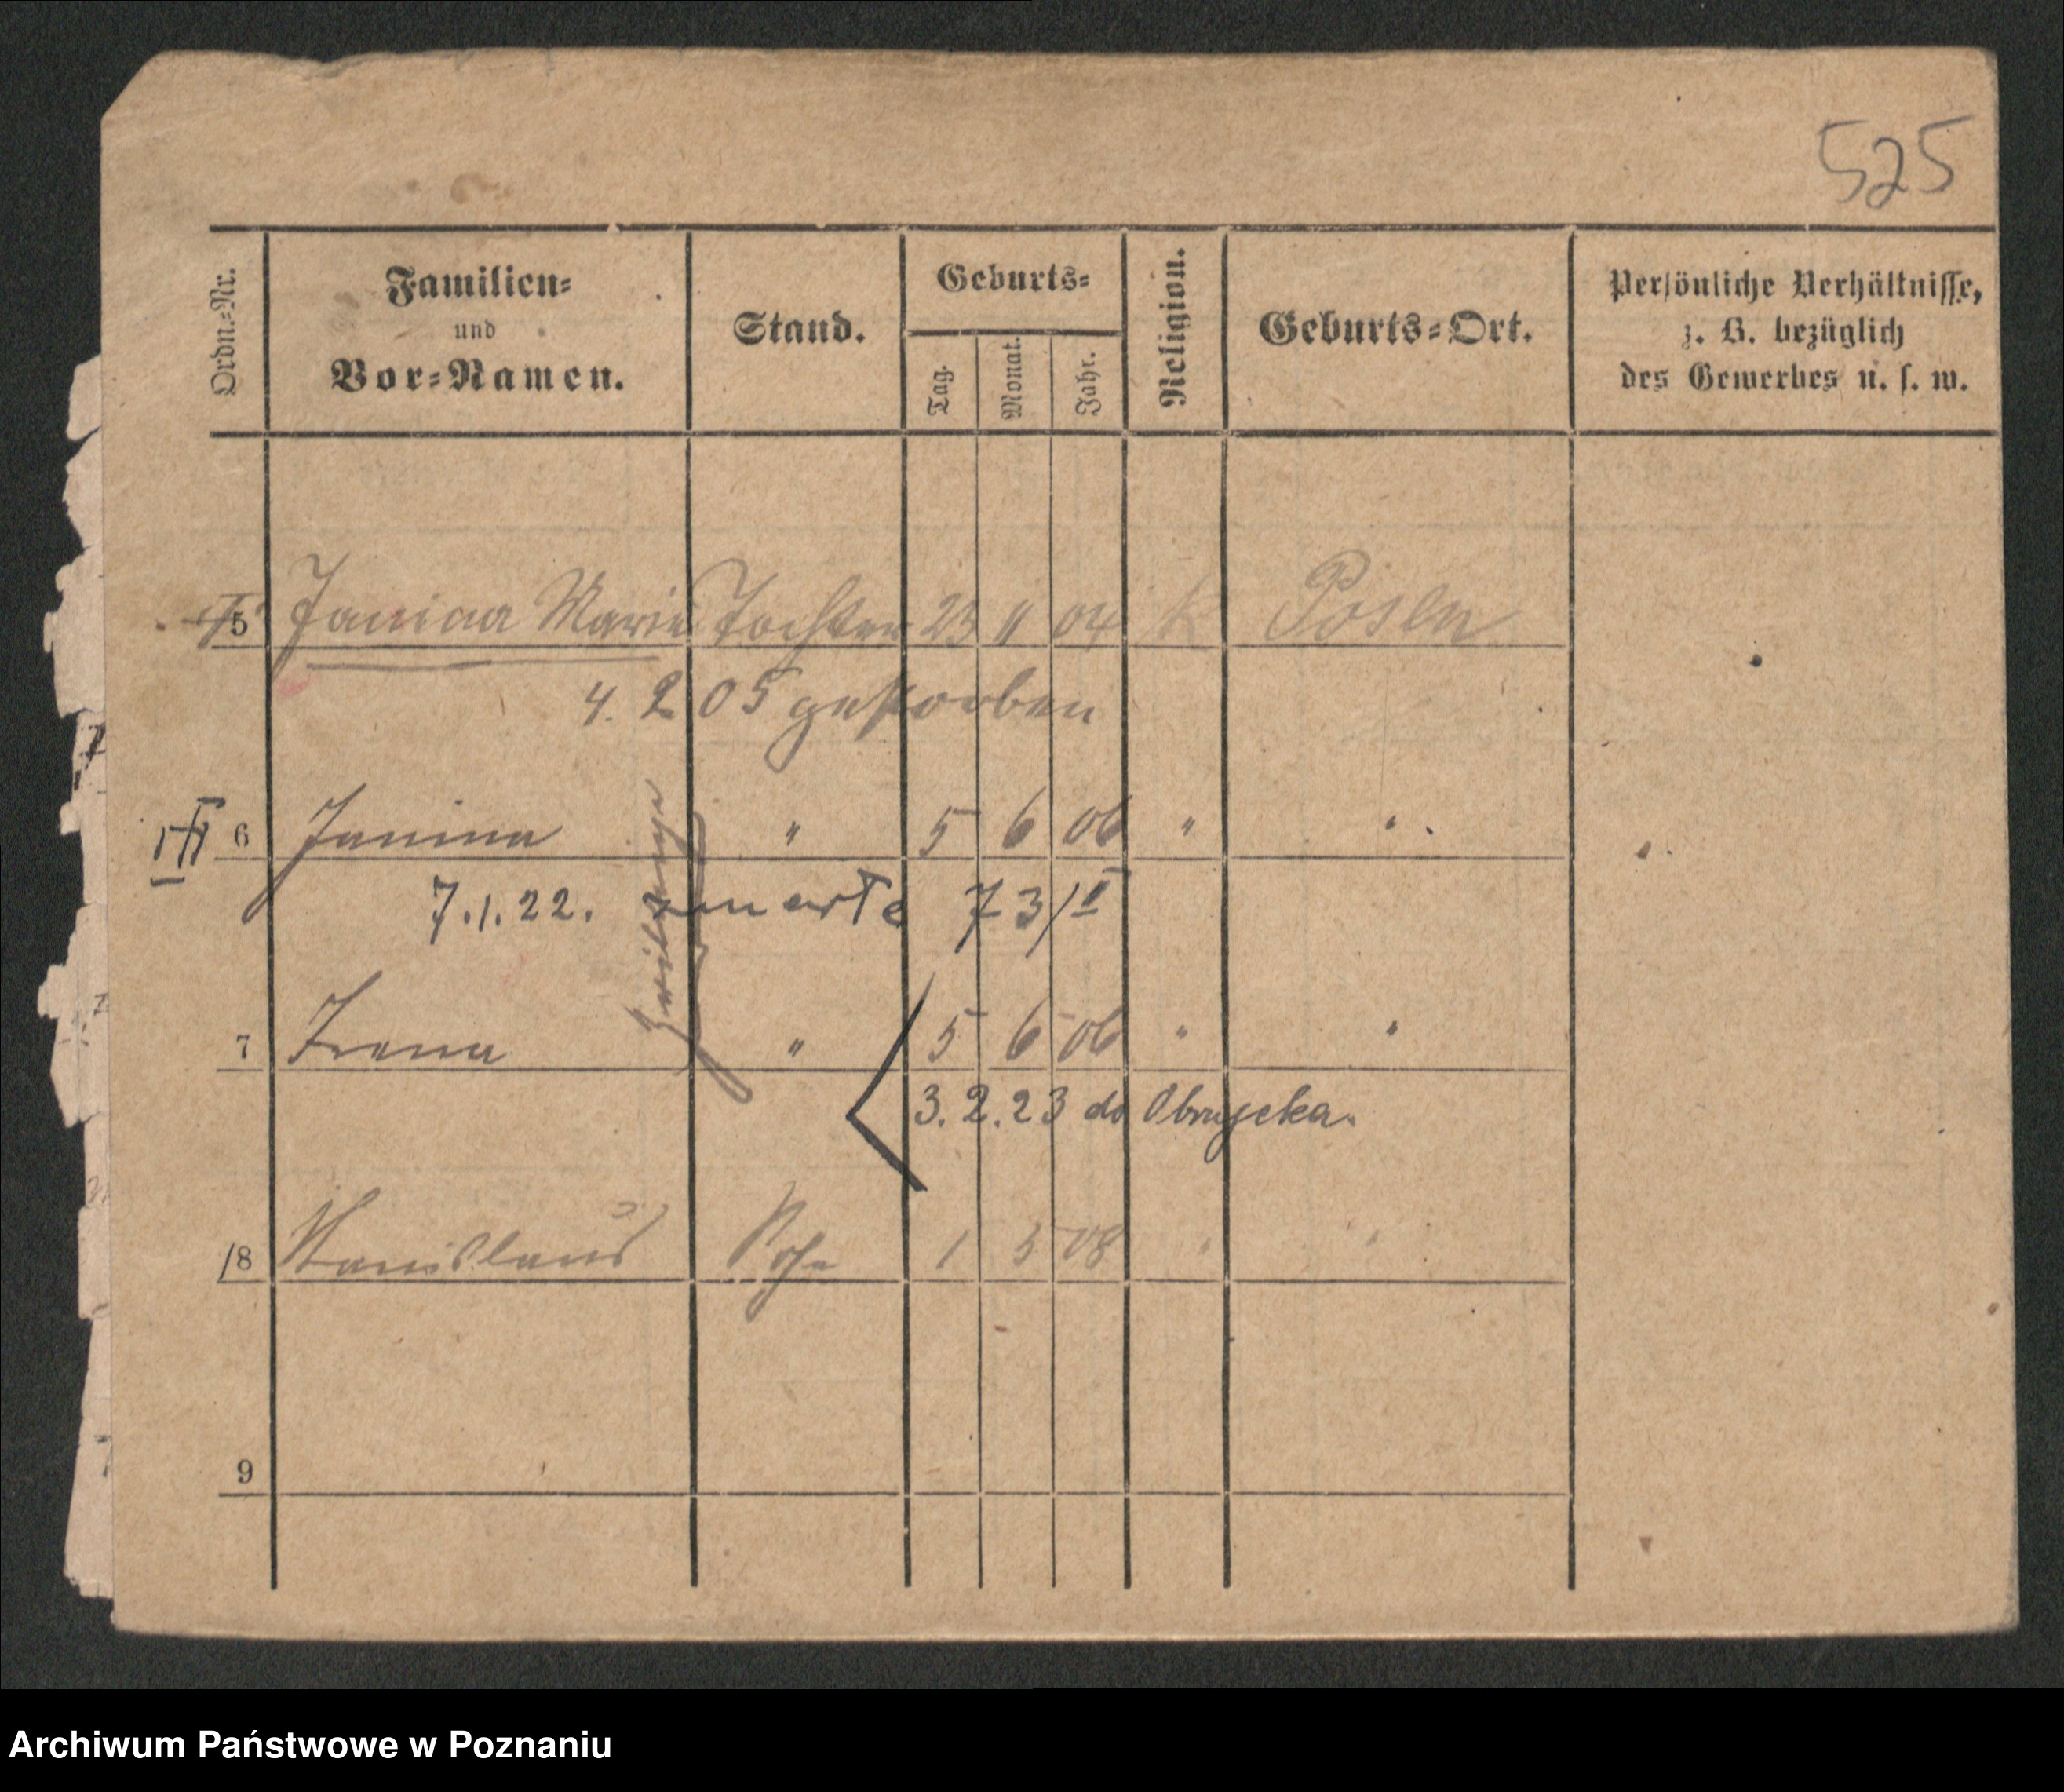 525
Ordn.-Nr. Familien- und Vor-Namen. Stand. Geburts- Tag. Monat. Jahr. Religion. Geburts-Ort. Persönliche Verhältnisse, z. B. bezüglich des Gewerbes u. s. w.
5 Janina Marie Tochter 23 11 04 K Posen
4. 2 05 gestorben
6 Janina " 5 6 06 " "
Zwillinge
7.1.22. umarła 73/II
7 Irena " 5 6 06 " "
3.2.23 do Obrzycka.
8 Stanislaus Sohn 1 5 08 " "
9
Archiwum Państwowe w Poznaniu